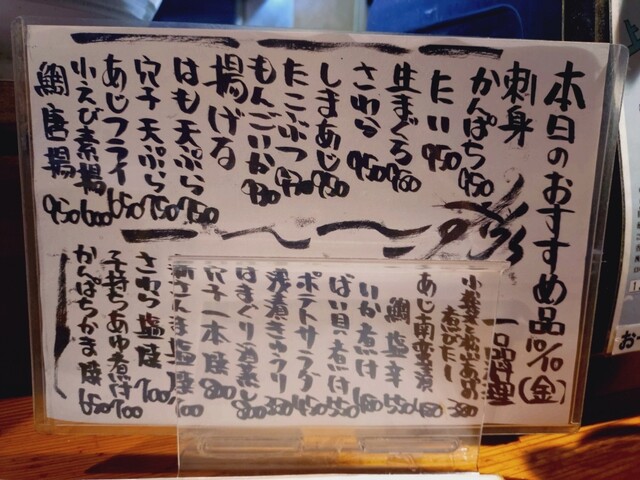 本日のおすすめ品 10/10(金)
刺身
かんぱち 950
たい 950
生まぐろ 980
さわら 950
しまあじ 950
たこぶつ
もんごいか
揚げる
はも天ぷら 750
穴子天ぷら 750
あじフライ 650
小えび素揚 600
鯛唐揚 950
一品料理
煮びたし 380
あじ南蛮漬
鯛塩辛 550
いか煮付
ばい貝煮付 550
ポテトサラダ 450
浅漬きゅうり 350
はまぐり酒蒸し
穴子一本焼
さんま塩焼
さわら塩焼
子持ちあゆ煮付 700
かんぱちかま焼 650
お